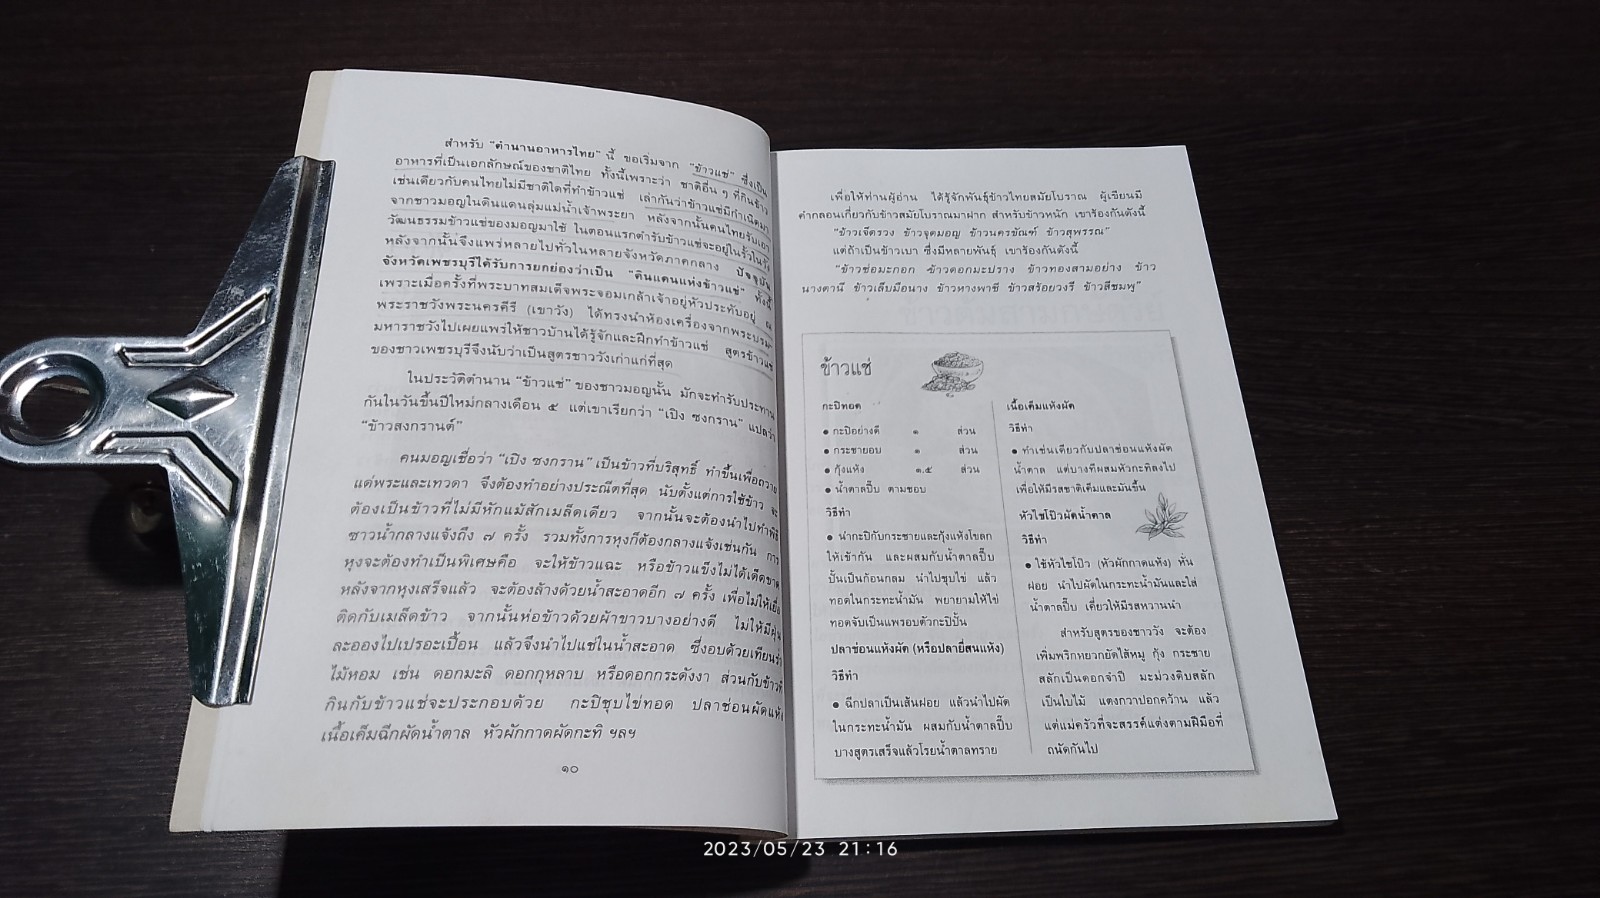 สำหรับ “ตำนานอาหารไทย” นี้ ขอเริ่มจาก “ข้าวแช่” ซึ่งเป็น
อาหารที่เป็นเอกลักษณ์ของชาติไทย ทั้งนี้เพราะว่า ชาติอื่น ๆ ที่กินข้าว
เช่นเดียวกับคนไทยไม่มีชาติใดที่ทำข้าวแช่ เล่ากันว่าข้าวแช่มีกำเนิดมา
จากชาวมอญในดินแดนลุ่มแม่น้ำเจ้าพระยา หลังจากนั้นคนไทยรับเอา
วัฒนธรรมข้าวแช่ของมอญมาใช้ ในตอนแรกตำรับข้าวแช่จะอยู่ในรั้วในวัง
หลังจากนั้นจึงแพร่หลายไปทั่วในหลายจังหวัดภาคกลาง ปัจจุบัน
จังหวัดเพชรบุรีได้รับการยกย่องว่าเป็น “ดินแดนแห่งข้าวแช่” ทั้งนี้
เพราะเมื่อครั้งที่พระบาทสมเด็จพระจอมเกล้าเจ้าอยู่หัวประทับอยู่ ณ
พระราชวังพระนครคีรี (เขาวัง) ได้ทรงนำห้องเครื่องจากพระบรม-
มหาราชวังไปเผยแพร่ให้ชาวบ้านได้รู้จักและฝึกทำข้าวแช่ สูตรข้าวแช่
ของชาวเพชรบุรีจึงนับว่าเป็นสูตรชาววังเก่าแก่ที่สุด
ในประวัติตำนาน “ข้าวแช่” ของชาวมอญนั้น มักจะทำรับประทาน
กันในวันขึ้นปีใหม่กลางเดือน ๕ แต่เขาเรียกว่า “เปิง ซงกราน” แปลว่า
“ข้าวสงกรานต์”
คนมอญเชื่อว่า “เปิง ซงกราน” เป็นข้าวที่บริสุทธิ์ ทำขึ้นเพื่อถวาย
แด่พระและเทวดา จึงต้องทำอย่างประณีตที่สุด นับตั้งแต่การใช้ข้าว จะ
ต้องเป็นข้าวที่ไม่มีหักแม้สักเมล็ดเดียว จากนั้นจะต้องนำไปทำพิธี
ซาวน้ำกลางแจ้งถึง ๗ ครั้ง รวมทั้งการหุงก็ต้องกลางแจ้งเช่นกัน การ
หุงจะต้องทำเป็นพิเศษคือ จะให้ข้าวแฉะ หรือข้าวแข็งไม่ได้เด็ดขาด
หลังจากหุงเสร็จแล้ว จะต้องล้างด้วยน้ำสะอาดอีก ๗ ครั้ง เพื่อไม่ให้เยื่อ
ติดกับเมล็ดข้าว จากนั้นห่อข้าวด้วยผ้าขาวบางอย่างดี ไม่ให้มีฝุ่น
ละอองไปเปรอะเปื้อน แล้วจึงนำไปแช่ในน้ำสะอาด ซึ่งอบด้วยเทียนร่ำ
ไม้หอม เช่น ดอกมะลิ ดอกกุหลาบ หรือดอกกระดังงา ส่วนกับข้าวที่
กินกับข้าวแช่จะประกอบด้วย กะปิชุบไข่ทอด ปลาช่อนผัดแห้ง
เนื้อเค็มฉีกผัดน้ำตาล หัวผักกาดผัดกะทิ ฯลฯ
๑๐
เพื่อให้ท่านผู้อ่าน ได้รู้จักพันธุ์ข้าวไทยสมัยโบราณ ผู้เขียนมี
คำกลอนเกี่ยวกับข้าวสมัยโบราณมาฝาก สำหรับข้าวหนัก เขาร้องกันดังนี้
“ข้าวเจ็ดรวง ข้าวจุดมอญ ข้าวนครขัณฑ์ ข้าวสุพรรณ”
แต่ถ้าเป็นข้าวเบา ซึ่งมีหลายพันธุ์ เขาร้องกันดังนี้
“ข้าวช่อมะกอก ข้าวดอกมะปราง ข้าวทองสามอย่าง ข้าว
นางตานี ข้าวเล็บมือนาง ข้าวหางพาชี ข้าวสร้อยวงรี ข้าวสีชมพู”
ข้าวแช่
กะปิทอด
● กะปิอย่างดี ๑ ส่วน
● กระชายอบ ๑ ส่วน
● กุ้งแห้ง ๑.๕ ส่วน
● น้ำตาลปี๊บ ตามชอบ
วิธีทำ
● นำกะปิกับกระชายและกุ้งแห้งโขลก
ให้เข้ากัน และผสมกับน้ำตาลปี๊บ
ปั้นเป็นก้อนกลม นำไปชุบไข่ แล้ว
ทอดในกระทะน้ำมัน พยายามให้ไข่
ทอดจับเป็นแพรอบตัวกะปิปั้น
ปลาช่อนแห้งผัด (หรือปลายี่สนแห้ง)
วิธีทำ
● ฉีกปลาเป็นเส้นฝอย แล้วนำไปผัด
ในกระทะน้ำมัน ผสมกับน้ำตาลปี๊บ
บางสูตรเสร็จแล้วโรยน้ำตาลทราย
เนื้อเค็มแห้งผัด
วิธีทำ
● ทำเช่นเดียวกับปลาช่อนแห้งผัด
น้ำตาล แต่บางทีผสมหัวกะทิลงไป
เพื่อให้มีรสชาติเค็มและมันขึ้น
หัวไชโป๊วผัดน้ำตาล
วิธีทำ
● ใช้หัวไชโป๊ว (หัวผักกาดแห้ง) หั่น
ฝอย นำไปผัดในกระทะน้ำมันและใส่
น้ำตาลปี๊บ เคี่ยวให้มีรสหวานนำ
สำหรับสูตรของชาววัง จะต้อง
เพิ่มพริกหยวกยัดไส้หมู กุ้ง กระชาย
สลักเป็นดอกจำปี มะม่วงดิบสลัก
เป็นใบไม้ แตงกวาปอกคว้าน แล้ว
แต่แม่ครัวที่จะสรรค์แต่งตามฝีมือที่
ถนัดกันไป
2023/05/23 21:16